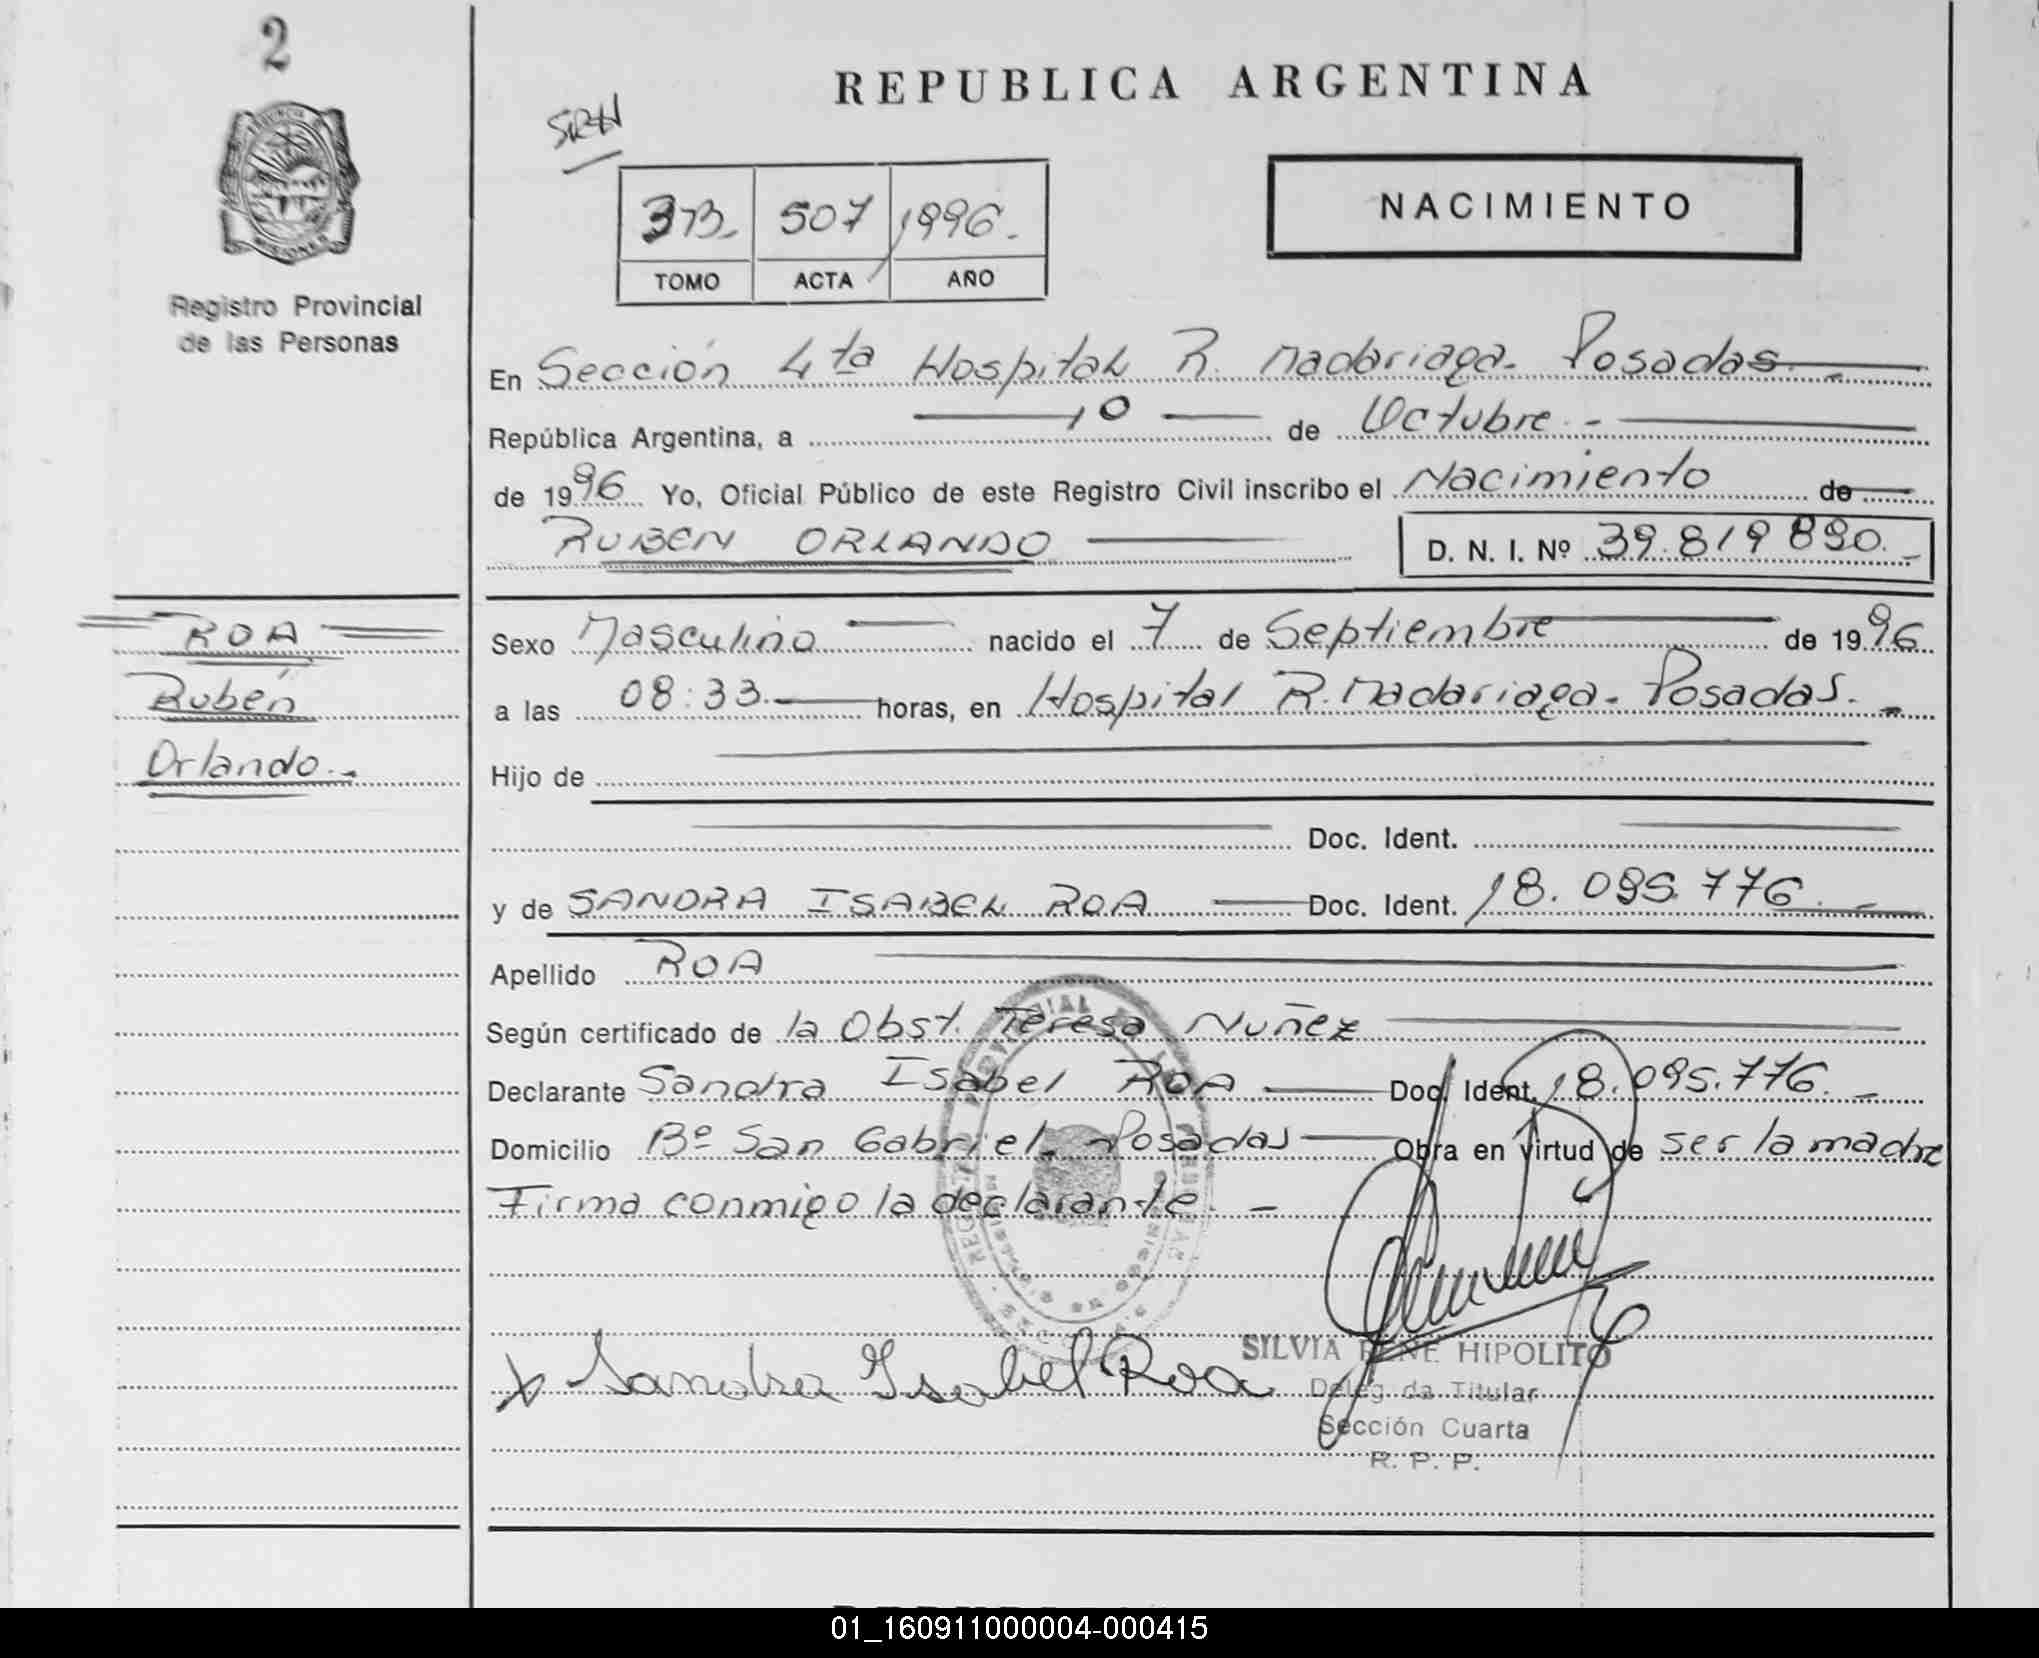 2
REPUBLICA ARGENTINA
SRH
NACIMIENTO
507 1996.
TOMO ACTA AÑO
Registro Provincial
de las Personas
En Sección 4ta Hospital R. Madariaga. Posadas.
República Argentina, a 10 de Octubre.
de 1996 Yo, Oficial Público de este Registro Civil inscribo el Nacimiento de
RUBEN ORLANDO D. N. I. Nº 39.819 890.
ROA
Rubén
Orlando.
Sexo Masculino nacido el 7 de Septiembre de 1996
a las 08:33. horas, en Hospital R. Madariaga. Posadas.
Hijo de
Doc. Ident.
y de SANDRA ISABEL ROA Doc. Ident. 18.095.776.
Apellido ROA
Según certificado de la Obst. Teresa Nuñez
Declarante Sandra Isabel ROA Doc. Ident. 18.095.776.
Domicilio Bº San Gabriel. Posadas Obra en virtud de ser la madre
Firma conmigo la declarante.
x Sandra Isabel Roa
SILVIA RENE HIPOLITO
Delegada Titular
Sección Cuarta
R. P. P.
01_160911000004-000415